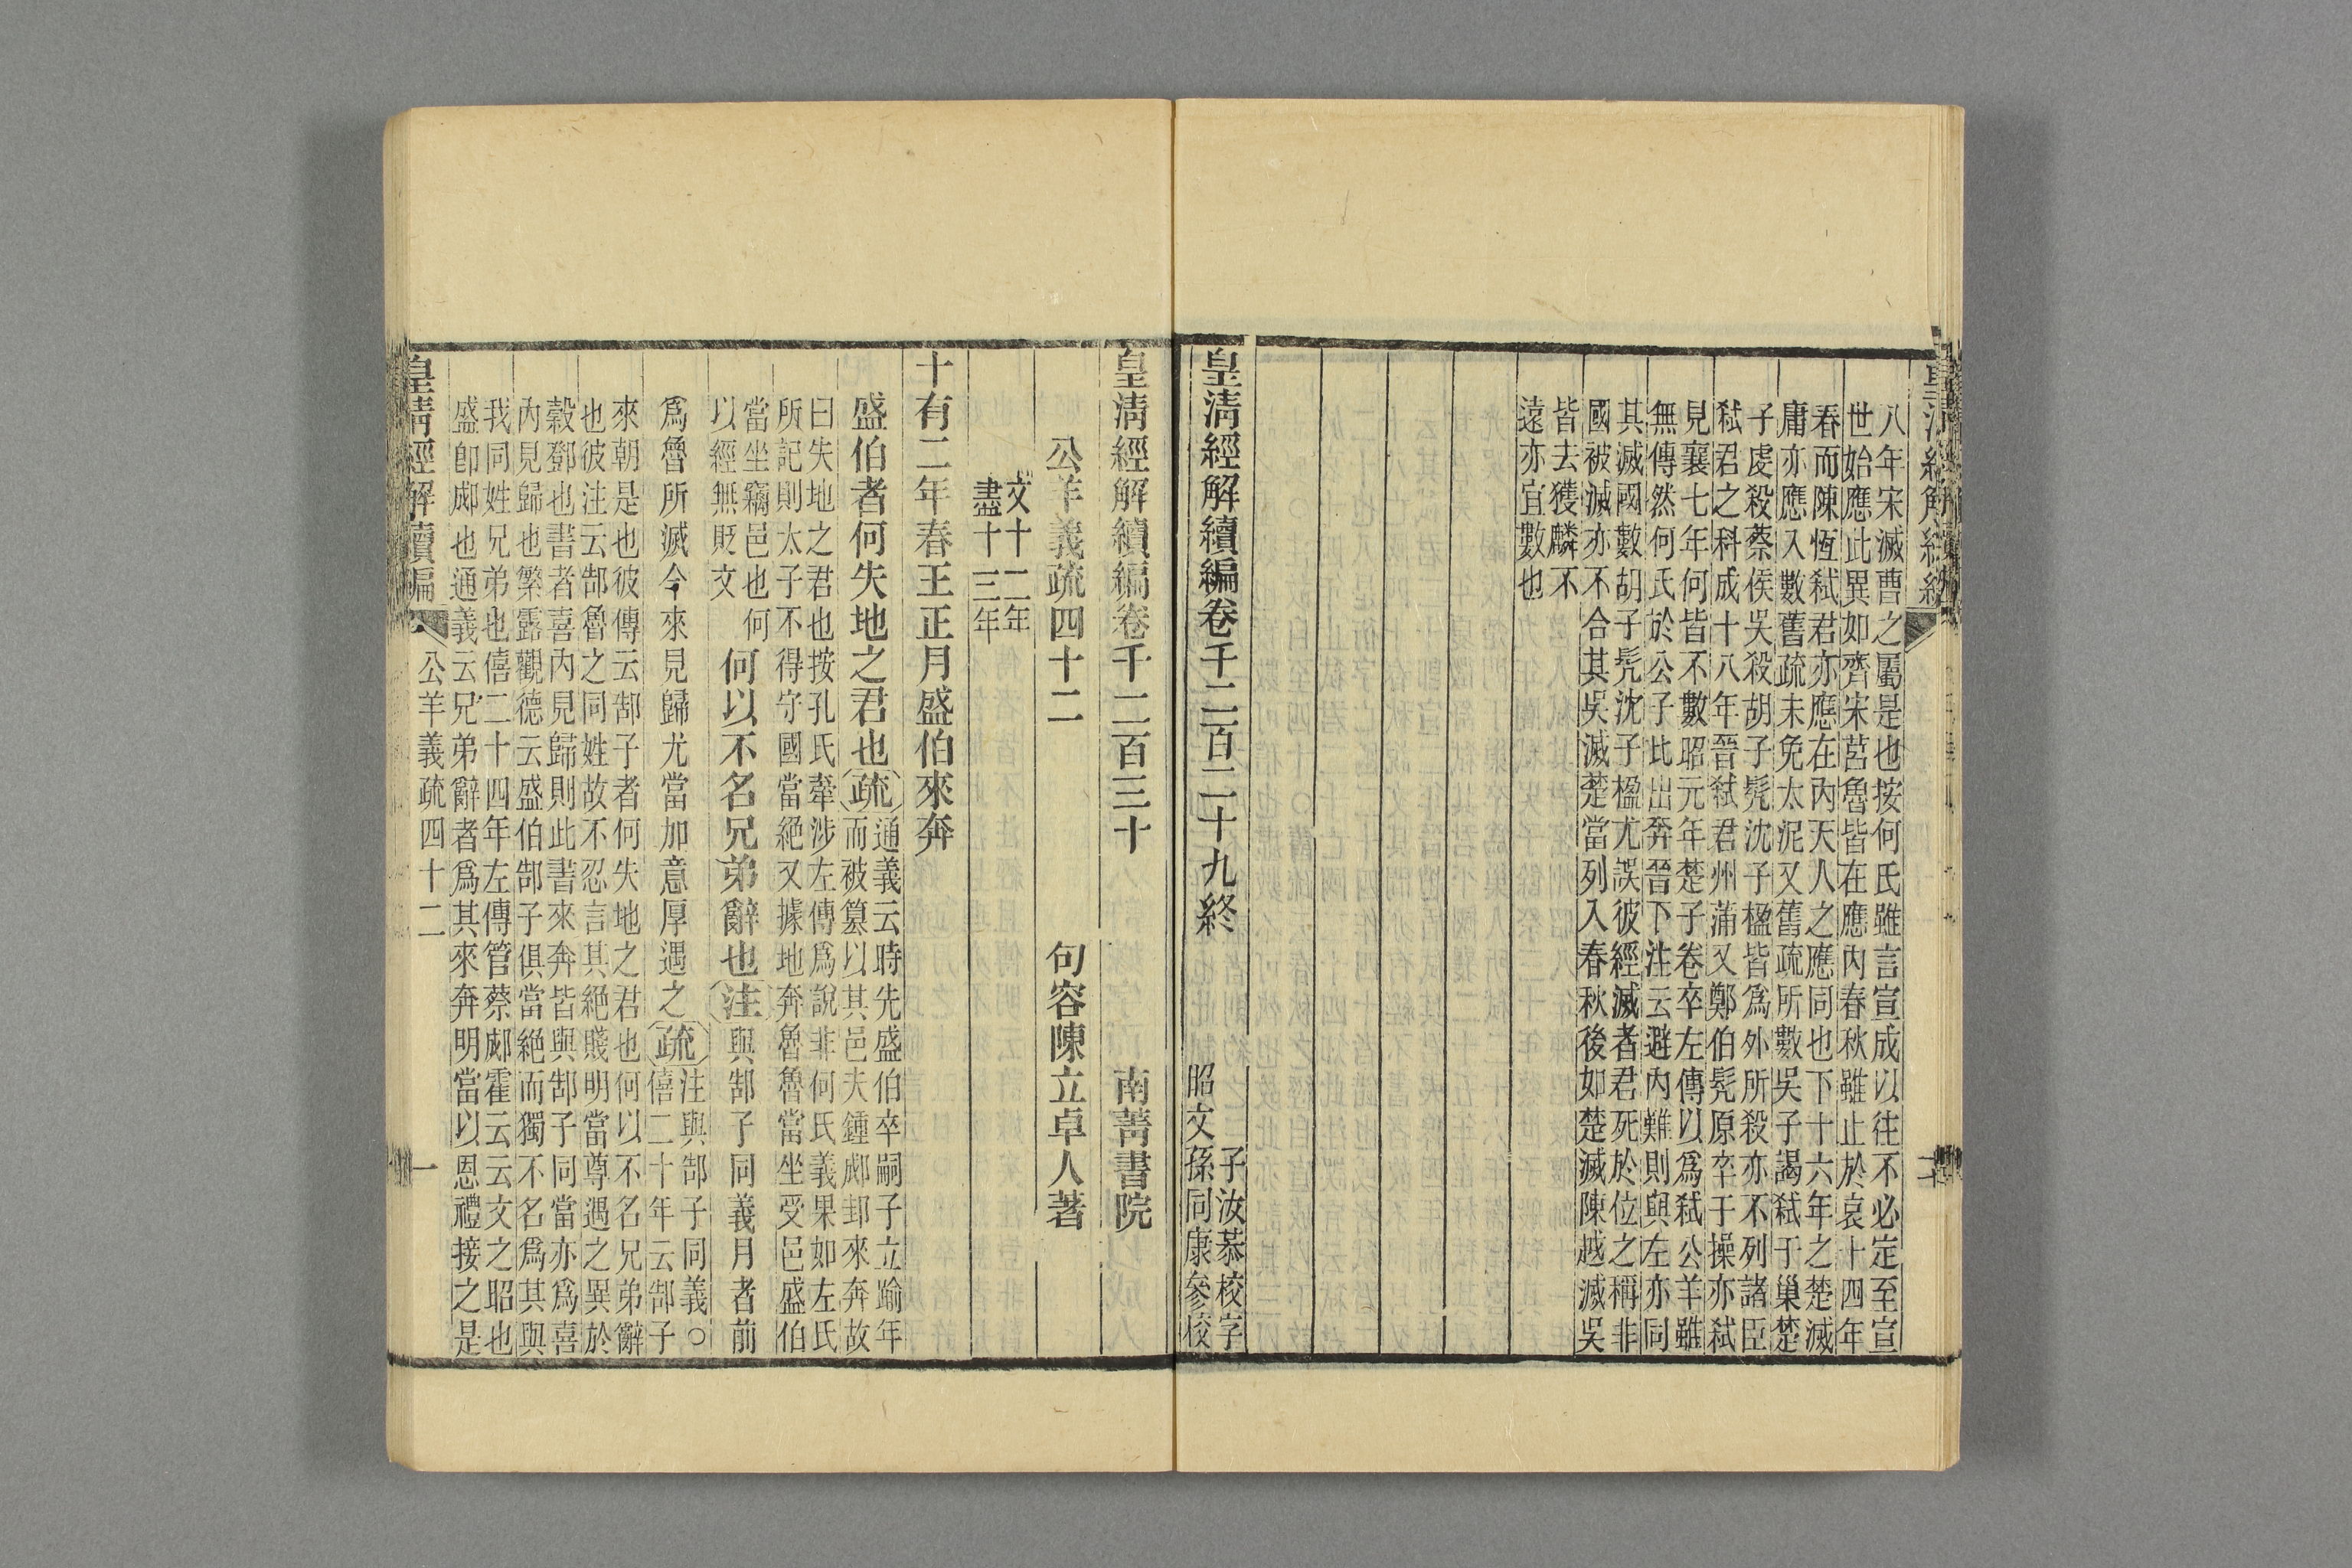 八年宋滅曹之屬是也按何氏雖言宣成以往不必定至宣
世始應此異如齊宋莒魯皆在應內春秋雖止於哀十四年
春而陳恆弒君亦應在內天人之應同也下十六年之楚滅
庸亦應入數舊疏未免太泥又舊疏所數吳子謁弒于巢楚
子虔殺蔡侯吳殺胡子髠沈子楹皆爲外所殺亦不列諸臣
弒君之科成十八年晉弒君州蒲又鄭伯髠原卒于操亦弒
見襄七年何皆不數昭元年楚子卷卒左傳以爲弒公羊雖
無傳然何氏於公子比出奔晉下注云避內難則與左亦同
其滅國數胡子髠沈子楹尤誤彼經滅者君死於位之稱非
國被滅亦不合其吳滅楚當列入春秋後如楚滅陳越滅吳
皆去獲麟不
遠亦宜數也
皇淸經解續編卷千二百二十九終
子汝恭校字
昭文孫同康參校
皇淸經解續編卷千二百三十
南菁書院
公羊義疏四十二
句容陳立卓人著
文十二年
盡十三年
十有二年春王正月盛伯來奔
盛伯者何失地之君也疏
通義云時先盛伯卒嗣子立踰年
而被篡以其邑夫鍾郕邽來奔故
曰失地之君也按孔氏牽涉左傳爲說非何氏義果如左氏
所記則太子不得守國當絕又據地奔魯魯當坐受邑盛伯
當坐竊邑也何
以經無貶文
何以不名兄弟辭也注
與郜子同義月者前
爲魯所滅今來見歸尤當加意厚遇之疏
注與郜子同義○
僖二十年云郜子
來朝是也彼傳云郜子者何失地之君也何以不名兄弟辭
也彼注云郜魯之同姓故不忍言其絕賤明當尊遇之異於
穀鄧也書者喜內見歸則此書來奔皆與郜子同當亦爲喜
內見歸也繁露觀德云盛伯郜子俱當絕而獨不名爲其與
我同姓兄弟也僖二十四年左傳管蔡郕霍云云文之昭也
盛卽郕也通義云兄弟辭者爲其來奔明當以恩禮接之是
皇淸經解續編
公羊義疏四十二
一